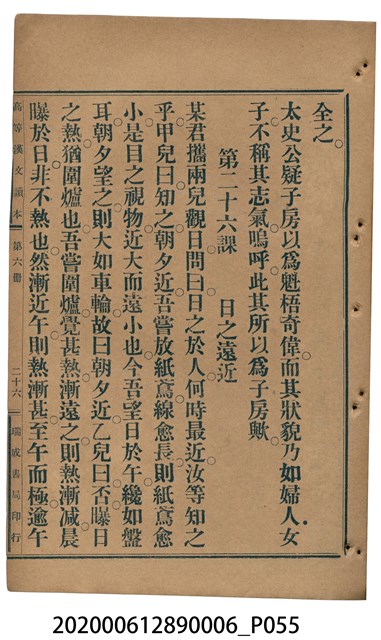 全之。
太史公疑子房以爲魁梧奇偉。而其狀貌乃如婦人女
子。不稱其志氣。嗚呼。此其所以爲子房歟。
第二十六課　日之遠近
某君攜兩兒觀日。問曰。日之於人。何時最近。汝等知之
乎。甲兒曰。知之。朝夕近。吾嘗放紙鳶。線愈長。則紙鳶愈
小。是目之視物。近大而遠小也。今吾望日於午。纔如盤
耳。朝夕望之。則大如車輪。故曰朝夕近。乙兒曰。否。曝日
之熱。猶圍爐也。吾嘗圍爐。覺甚熱。漸遠之。則熱漸減。晨
曝於日。非不熱也。然漸近午。則熱漸甚。至午而極。逾午
高等漢文讀本　第六冊　二十六　瑞成書局印行
202000612890006_P055